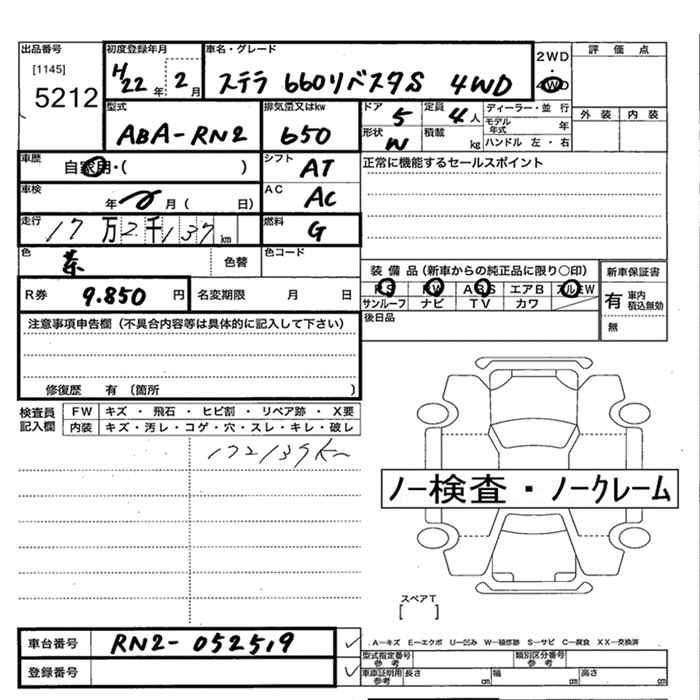 出品番号
[1145]
5212
初度登録年月
H22年 2月
車名・グレード
ステラ 660リベスタS 4WD
2WD
・
4WD
評価点
外装 内装
型式
ABA-RN2
排気量又はkw
650
ドア 5
定員 4人
ディーラー・並行
モデル年式 年
形状 W
積載 kg
ハンドル 左・右
車歴
自家用・( )
シフト AT
正常に機能するセールスポイント
車検
年 月( 日)
AC AC
走行
17万2千137km
燃料 G
色 茶
色替
色コード
装備品(新車からの純正品に限り○印)
新車保証書
PS PW ABS エアB アルミW
サンルーフ ナビ TV カワ
有 車内積込無効
無
R券 9.850円
名変期限 月 日
後日品
注意事項申告欄(不具合内容等は具体的に記入して下さい)
修復歴 有 〔箇所 〕
検査員記入欄
FW キズ・飛石・ヒビ割・リペア跡・X要
内装 キズ・汚レ・コゲ・穴・スレ・キレ・破レ
172139km
ノー検査・ノークレーム
スペアT
[ ]
車台番号 RN2-052519
登録番号
A-キズ E-エクボ U-凹み W-補修跡 S-サビ C-腐食 XX-交換済
型式指定番号参考
類別区分番号参考
車庫証明用参考 長さ cm 幅 cm 高さ cm